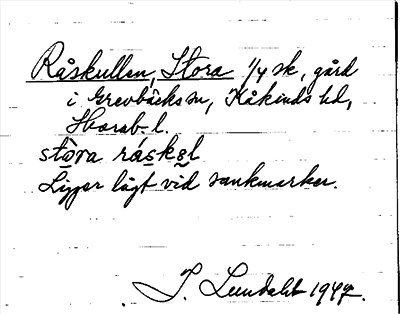 Råskullen, Stora 1/4 sk, gård
i Grevbäcks sn, Kåkinds hd,
Skarab. l.
stòra ráskəl
Ligger lågt vid sankmarker.
J. Lundahl 1947.